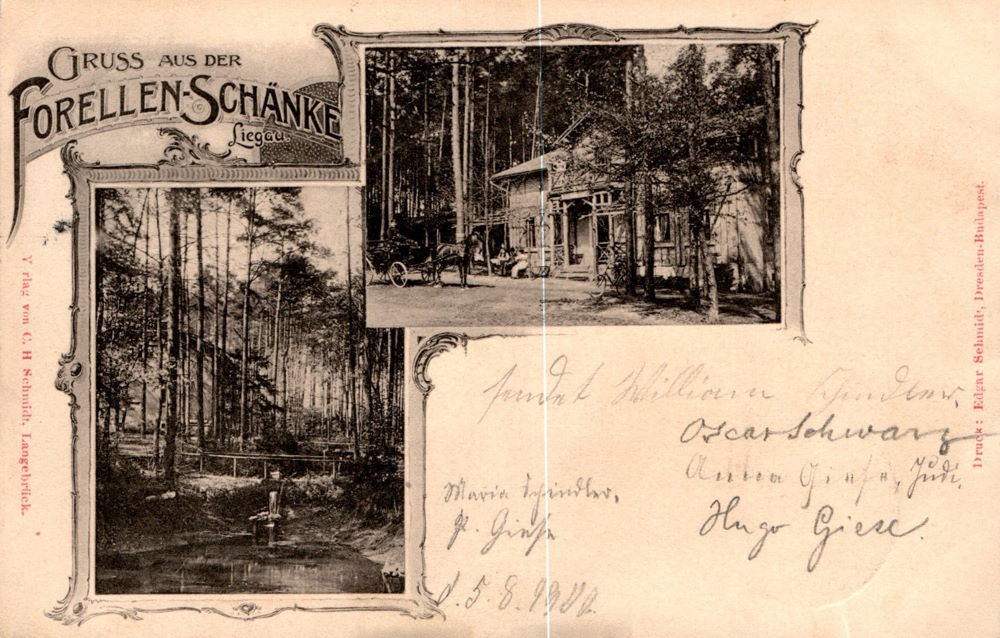 GRUSS AUS DER
FORELLEN-SCHÄNKE
Liegau.
sendet William Schindler,
Oscar Schwarz
Anna Giese, Judi,
Maria Schindler,
P. Giese
Hugo Giese.
d. 5.8.1900.
V rlag von C. H Schmidt, Langebrück.
Druck: Edgar Schmidt, Dresden-Budapest.